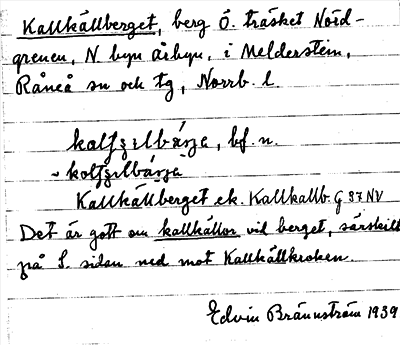 Kallkällberget, berg Ö. träsket Nord-
grenen, N byn Årbyn, i Melderstein,
Råneå sn och tg, Norrb. l.
bf. n.
Kallkällberget ek. Kallkallb. G 37 NV
Det är gott om kallkällor vid berget, särskilt
på S. sidan ned mot Kallkällkroken.
Edvin Brännström 1939